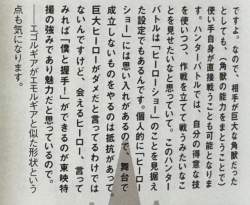 ですよ。なので、相手が巨大な角獣だった
としても、〈角獣の能力をまとうことで〉
使い手自身が直接戦うことが可能となりま
す。ハンターバトルでは、自分の得意な技
を使いつつ、作戦を立てて戦うみたいなこ
とを見せたいなと思っていて。このハンター
バトルは「ヒーローショー」のことを見据え
た設定でもあるんです。個人的に「ヒーロー
ショー」には思い入れがあるので、舞台で
成立しないものをやるのは抵抗があって。
巨大ヒーローがダメだと言ってるわけでは
ないんですけど、会えるヒーロー、言って
みれば「僕と握手！」ができるのが東映特
撮の強みであり魅力だと思っているので。
――エゴルギアがエモルギアと似た形状という
点も気になります。